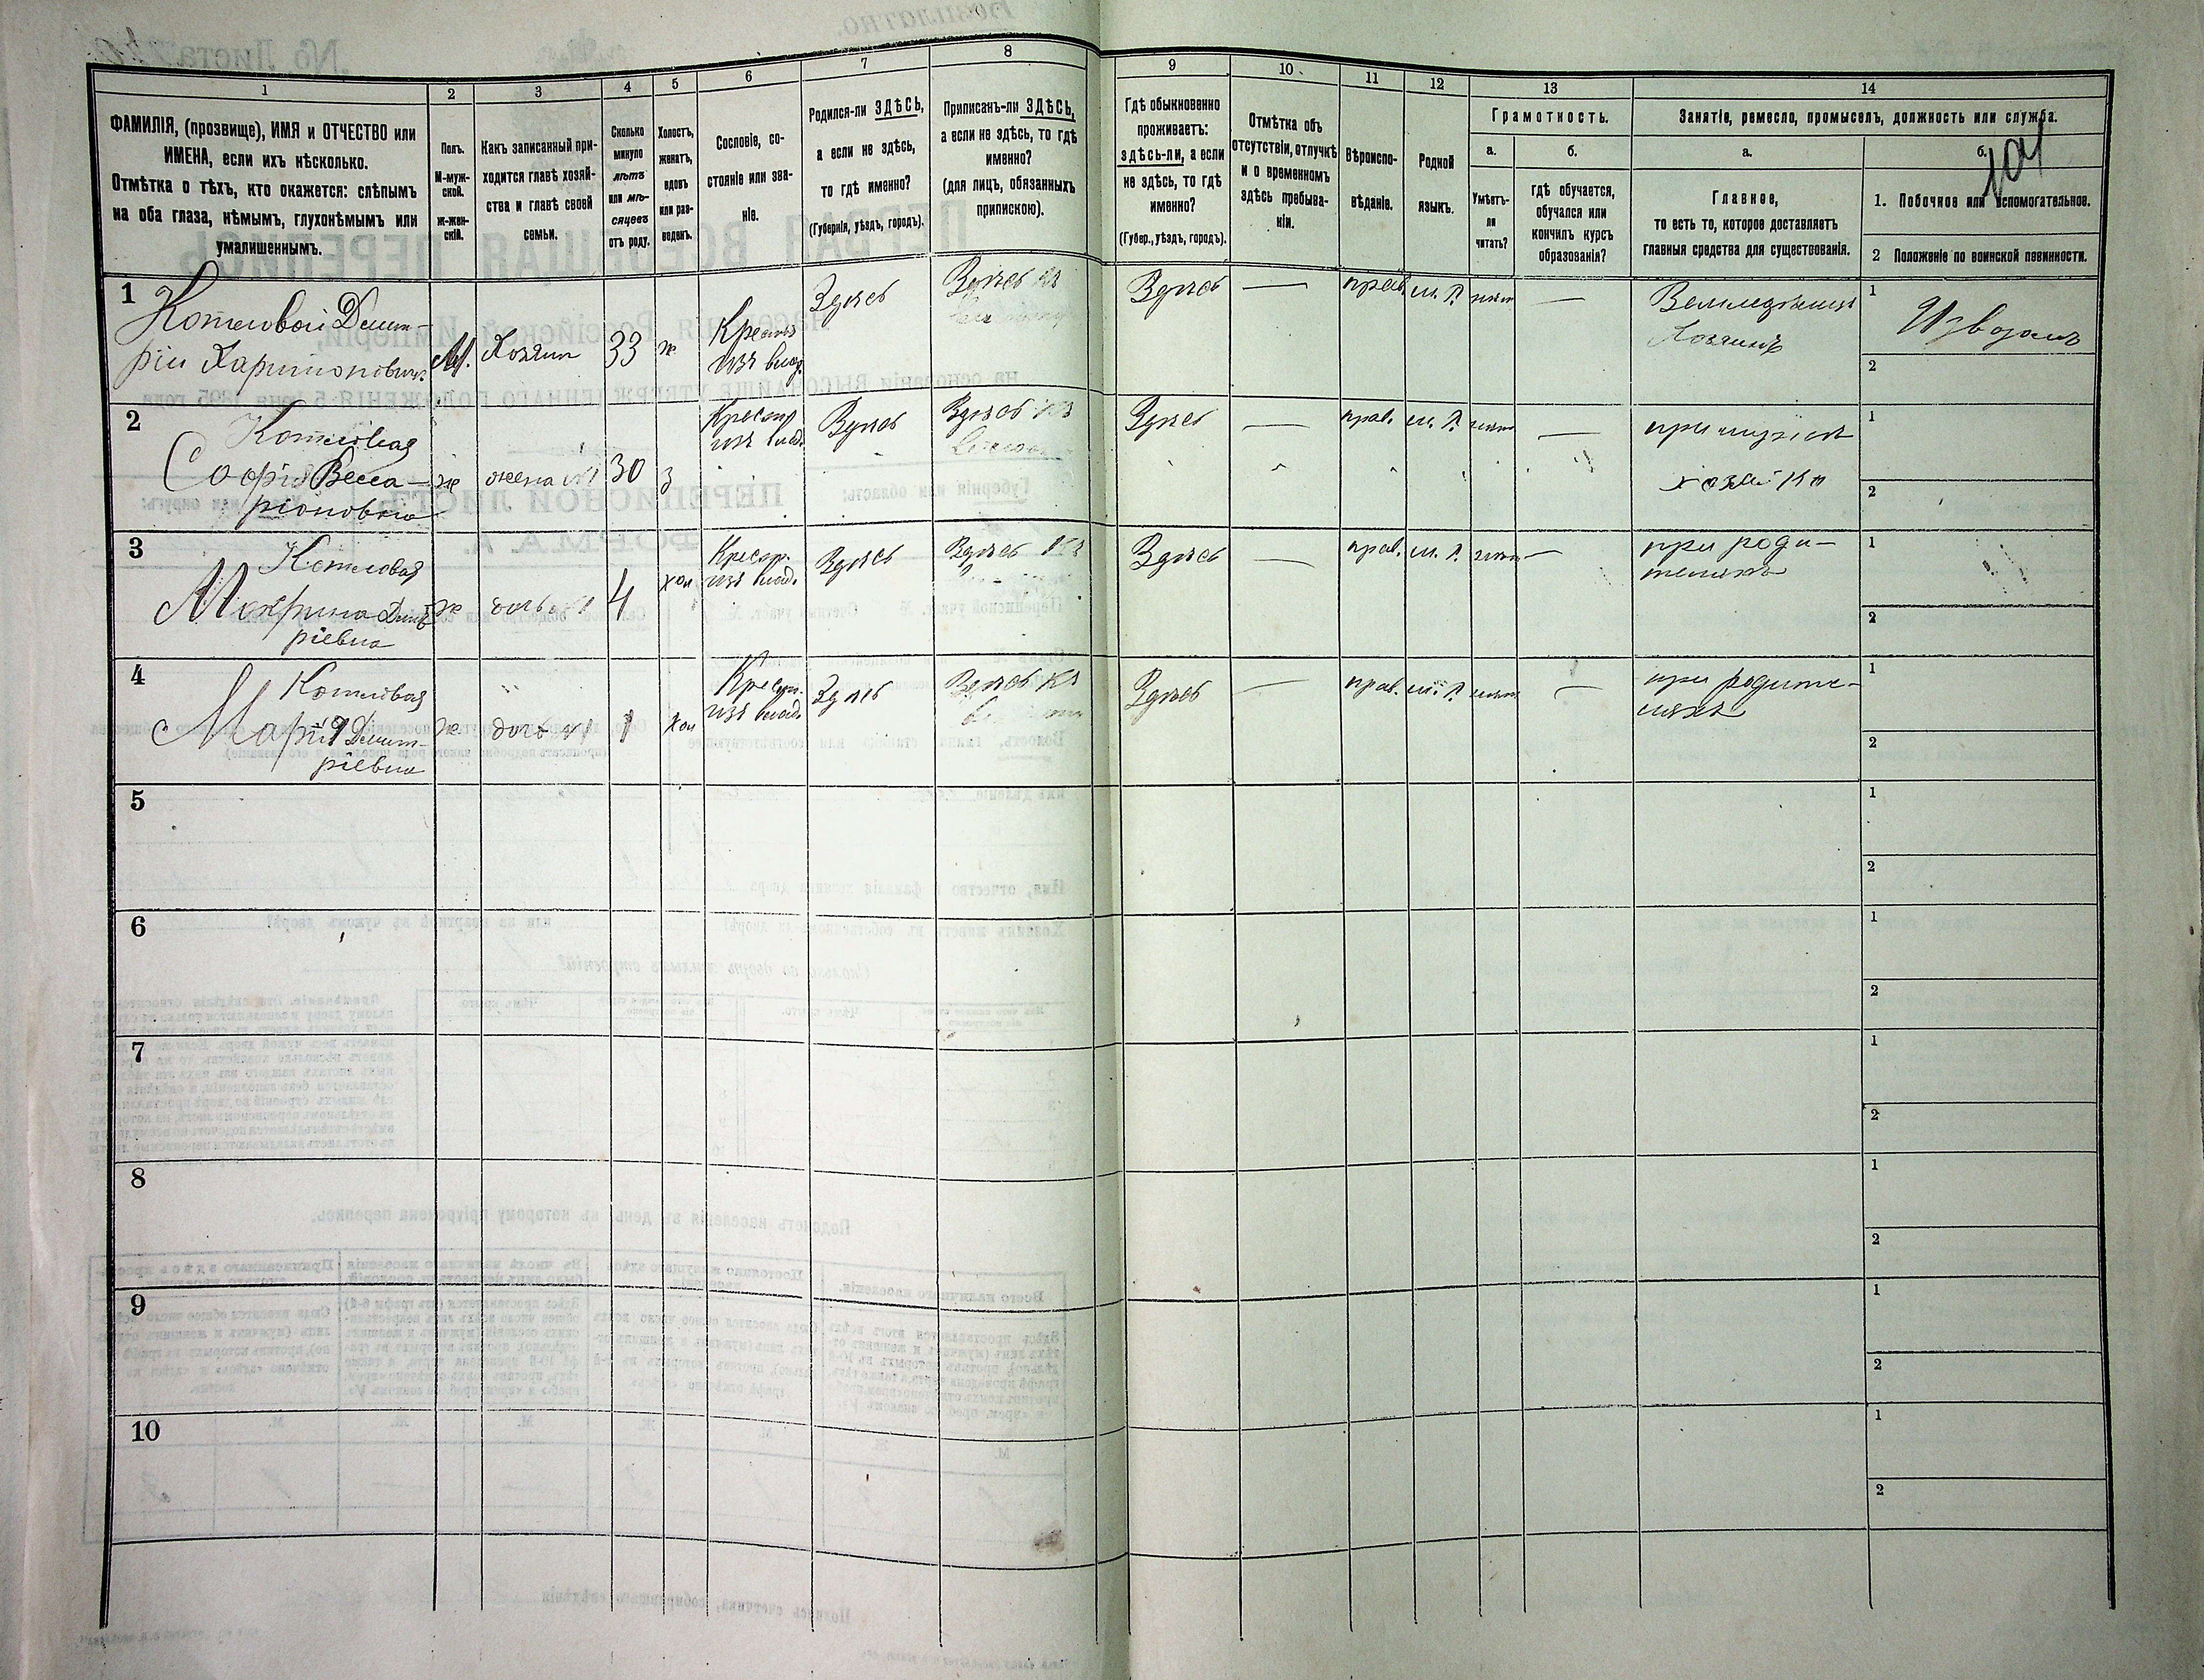 1 2 3 4 5 6 7 8 9 10 11 12 13 14
ФАМИЛІЯ, (прозвище), ИМЯ и ОТЧЕСТВО или
ИМЕНА, если ихъ нѣсколько.
Отмѣтка о тѣхъ, кто окажется: слѣпымъ
на оба глаза, нѣмымъ, глухонѣмымъ или
умалишеннымъ.
Полъ.
М-муж-
ской.
ж-жен-
скій.
Какъ записанный при-
ходится главѣ хозяй-
ства и главѣ своей
семьи.
Сколько
минуло
лѣтъ
или мѣ-
сяцевъ
отъ роду.
Холостъ,
женатъ,
вдовъ
или раз-
веденъ.
Сословіе, со-
стояніе или зва-
ніе.
Родился-ли ЗДѢСЬ,
а если не здѣсь,
то гдѣ именно?
(Губернія, уѣздъ, городъ).
Приписанъ-ли ЗДѢСЬ,
а если не здѣсь, то гдѣ
именно?
(для лицъ, обязанныхъ
припискою).
Гдѣ обыкновенно
проживаетъ:
здѣсь-ли, а если
не здѣсь, то гдѣ
именно?
(Губер., уѣздъ, городъ).
Отмѣтка объ
отсутствіи, отлучкѣ
и о временномъ
здѣсь пребыва-
ніи.
Вѣроиспо-
вѣданіе.
Родной
языкъ.
Грамотность.
а.
Умѣетъ-
ли
читать?
б.
гдѣ обучается,
обучался или
кончилъ курсъ
образованія?
Занятіе, ремесло, промыселъ, должность или служба.
а.
Главное,
то есть то, которое доставляетъ
главныя средства для существованія.
б.
101
1. Побочное или вспомогательное.
2 Положеніе по воинской повинности.
1
Котловой Димит-
рій Харитоновичъ
М. Хозяин 33 ж
Крестья
изъ влад.
Здѣсь
Здѣсь
Здѣсь
—
прав. м. Р. нѣт —
Хозяинъ
1
Извозомъ
2
2
Котловая
Софія Весса-
ріоновна
ж жена №1 30 з
Крестья
изъ влад.
Здѣсь
Здѣсь
Здѣсь
—
прав. м. Р. нѣт —
при мужѣ
хозяйка
1
2
3
Котловая
Макрина Димит
ріевна
ж дочь №1 4 хол
Крестья.
изъ влад.
Здѣсь
Здѣсь
Здѣсь
—
прав. м. Р. нѣт —
при роди-
теляхъ
1
2
4
Котловая
Марія Димит-
ріевна
ж дочь №1 1 хол
Крестья.
изъ влад.
Здѣсь
Здѣсь
Здѣсь
—
прав. м. Р. нѣт —
при родите-
ляхъ
1
2
5
1
2
6
1
2
7
1
2
8
1
2
9
1
2
10
1
2